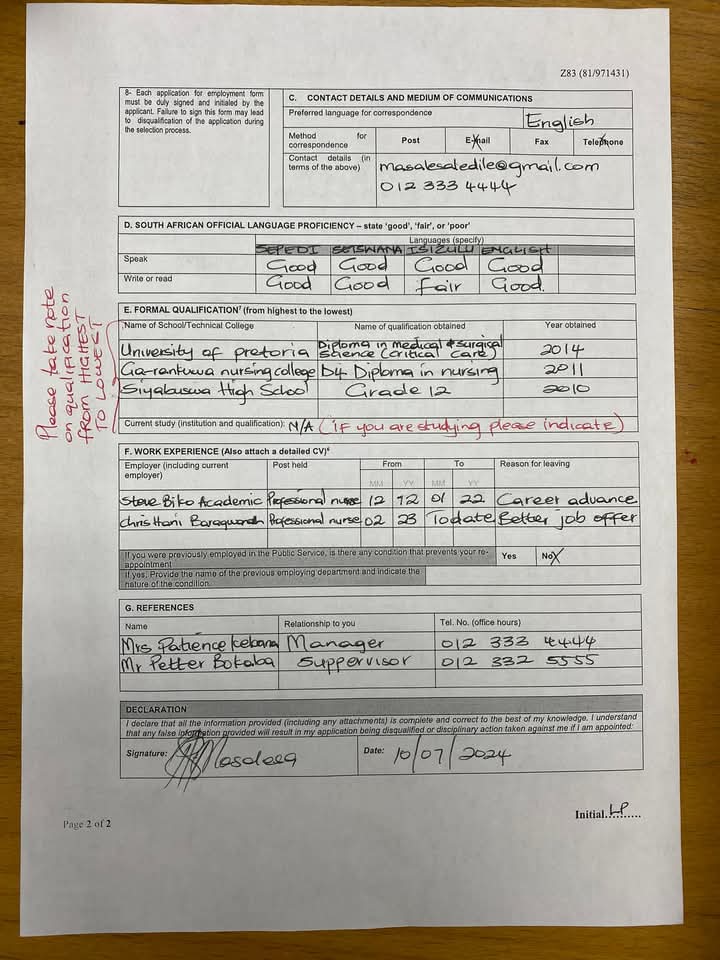 Z83 (81/971431)
8- Each application for employment form
must be duly signed and initialed by the
applicant. Failure to sign this form may lead
to disqualification of the application during
the selection process.
C. CONTACT DETAILS AND MEDIUM OF COMMUNICATIONS
Preferred language for correspondence English
Method for correspondence Post E-mail Fax Telephone
Contact details (in terms of the above) masalesaledile@gmail.com
012 333 4444
D. SOUTH AFRICAN OFFICIAL LANGUAGE PROFICIENCY – state 'good', 'fair', or 'poor'
Languages (specify)
SEPEDI SETSWANA ISIZULU ENGLISH
Speak Good Good Good Good
Write or read Good Good Fair Good.
Please take note
on qualification
from HIGHEST
TO LOWEST
E. FORMAL QUALIFICATION⁷ (from highest to the lowest)
Name of School/Technical College Name of qualification obtained Year obtained
University of pretoria Diploma in medical & surgical science (critical care) 2014
Ga-rankuwa nursing college D4 Diploma in nursing 2011
Siyabuswa High School Grade 12 2010
Current study (institution and qualification): N/A (IF you are studying please indicate)
F. WORK EXPERIENCE (Also attach a detailed CV)⁶
Employer (including current employer) Post held From To Reason for leaving
MM YY MM YY
Steve Biko Academic Professional nurse 12 12 01 22 Career advance
Chris Hani Professional nurse 02 23 To date Better job offer
If you were previously employed in the Public Service, is there any condition that prevents your re-appointment Yes No
If yes, Provide the name of the previous employing department and indicate the nature of the condition.
G. REFERENCES
Name Relationship to you Tel. No. (office hours)
Mrs Patience Kebana Manager 012 333 4444
Mr Petter Bokaba Suppervisor 012 332 5555
DECLARATION
I declare that all the information provided (including any attachments) is complete and correct to the best of my knowledge. I understand
that any false information provided will result in my application being disqualified or disciplinary action taken against me if I am appointed:
Signature: Date: 10/07/2024
Initial. LP
Page 2 of 2